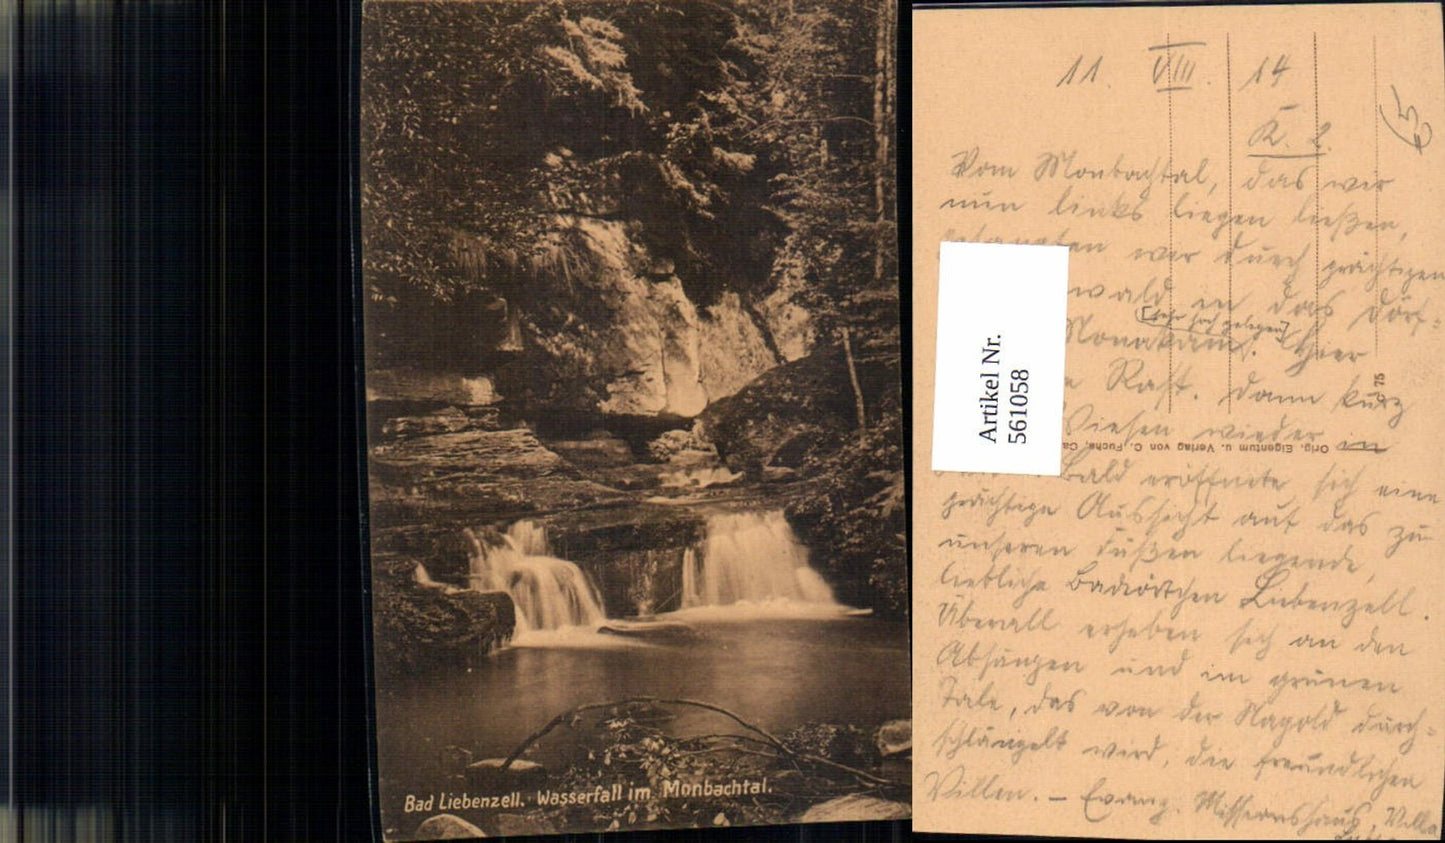 Bad Liebenzell. Wasserfall im Monbachtal.
Artikel Nr.
561058
11. VIII. 14
K. 2.
Vom Monbachtal, das wir
nun links liegen ließen,
gelangten wir durch prächtigen
wald in das Dörf-
[sehr hoch gelegen]
Monakam. Hier
Rast. Dann kurz
Wiesen wieder in
Bald eröffnete sich eine
prächtige Aussicht auf das zu
unseren Füßen liegende,
liebliche Badörtchen Liebenzell.
Überall erheben sich an den
Abhängen und im grünen
Tale, das von der Nagold durch-
schlängelt wird, die freundlichen
Villen. – Evang. Missionshaus, Villa
Orig. Eigentum u. Verlag von C. Fuchs, Ca
75